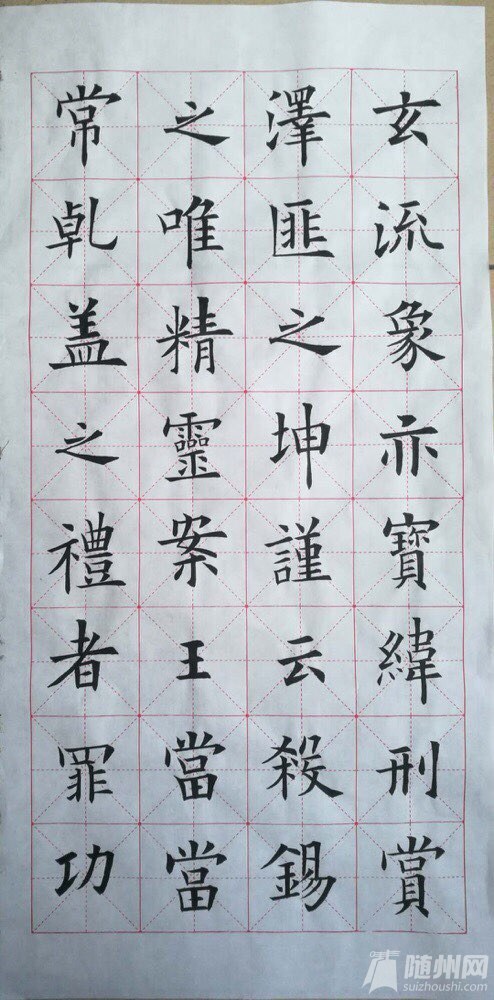 玄流象亦寶緯刑賞
澤匪之坤謹云殺錫
之唯精靈案王當當
常乹盖之禮者罪功
随州网
suizhoushi.com